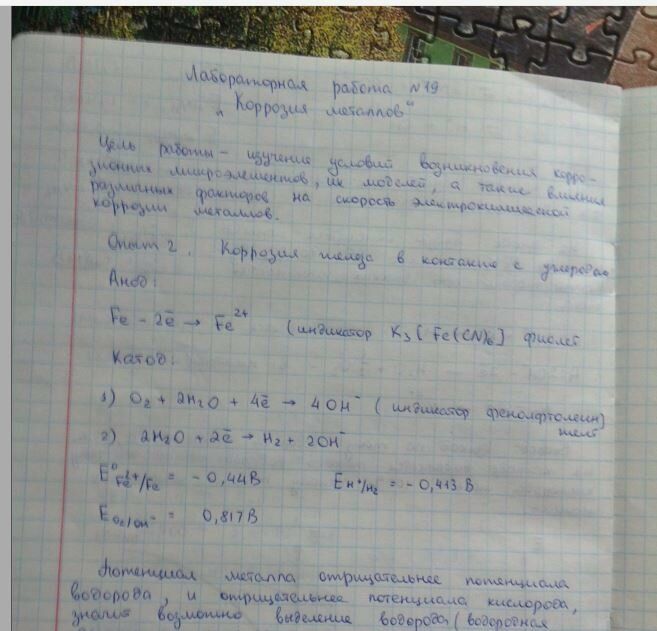 Лабораторная работа №19
„Коррозия металлов"
Цель работы - изучение условий возникновения корро-
зионных микроэлементов, их моделей, а также влияния
различных факторов на скорость электрохимической
коррозии металлов.
Опыт 2. Коррозия железа в контакте с углеродом
Анод:
Fe - 2ē → Fe²⁺ (индикатор K₃[Fe(CN)₆] фиолет
Катод:
1) O₂ + 2H₂O + 4ē → 4OH⁻ (индикатор фенолфтолеин)
желт
2) 2H₂O + 2ē → H₂ + 2OH⁻
E⁰ Fe²⁺/Fe = - 0,44В E H⁺/H₂ = - 0,413 В
E O₂/OH⁻ = 0,817В
Потенциал металла отрицательнее потенциала
водорода, и отрицательнее потенциала кислорода,
значит возможно выделение водорода (водородная